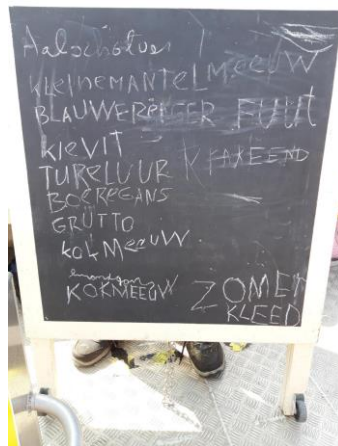 Aalscholver
KLEINEMANTELMEEUW
BLAUWEREIGER FUUT
KIEVIT
TURELUUR KRAKEEND
BOEREGANS
GRUTTO
KOKMEEUW
KOKMEEUW
ZOMER
KLEED